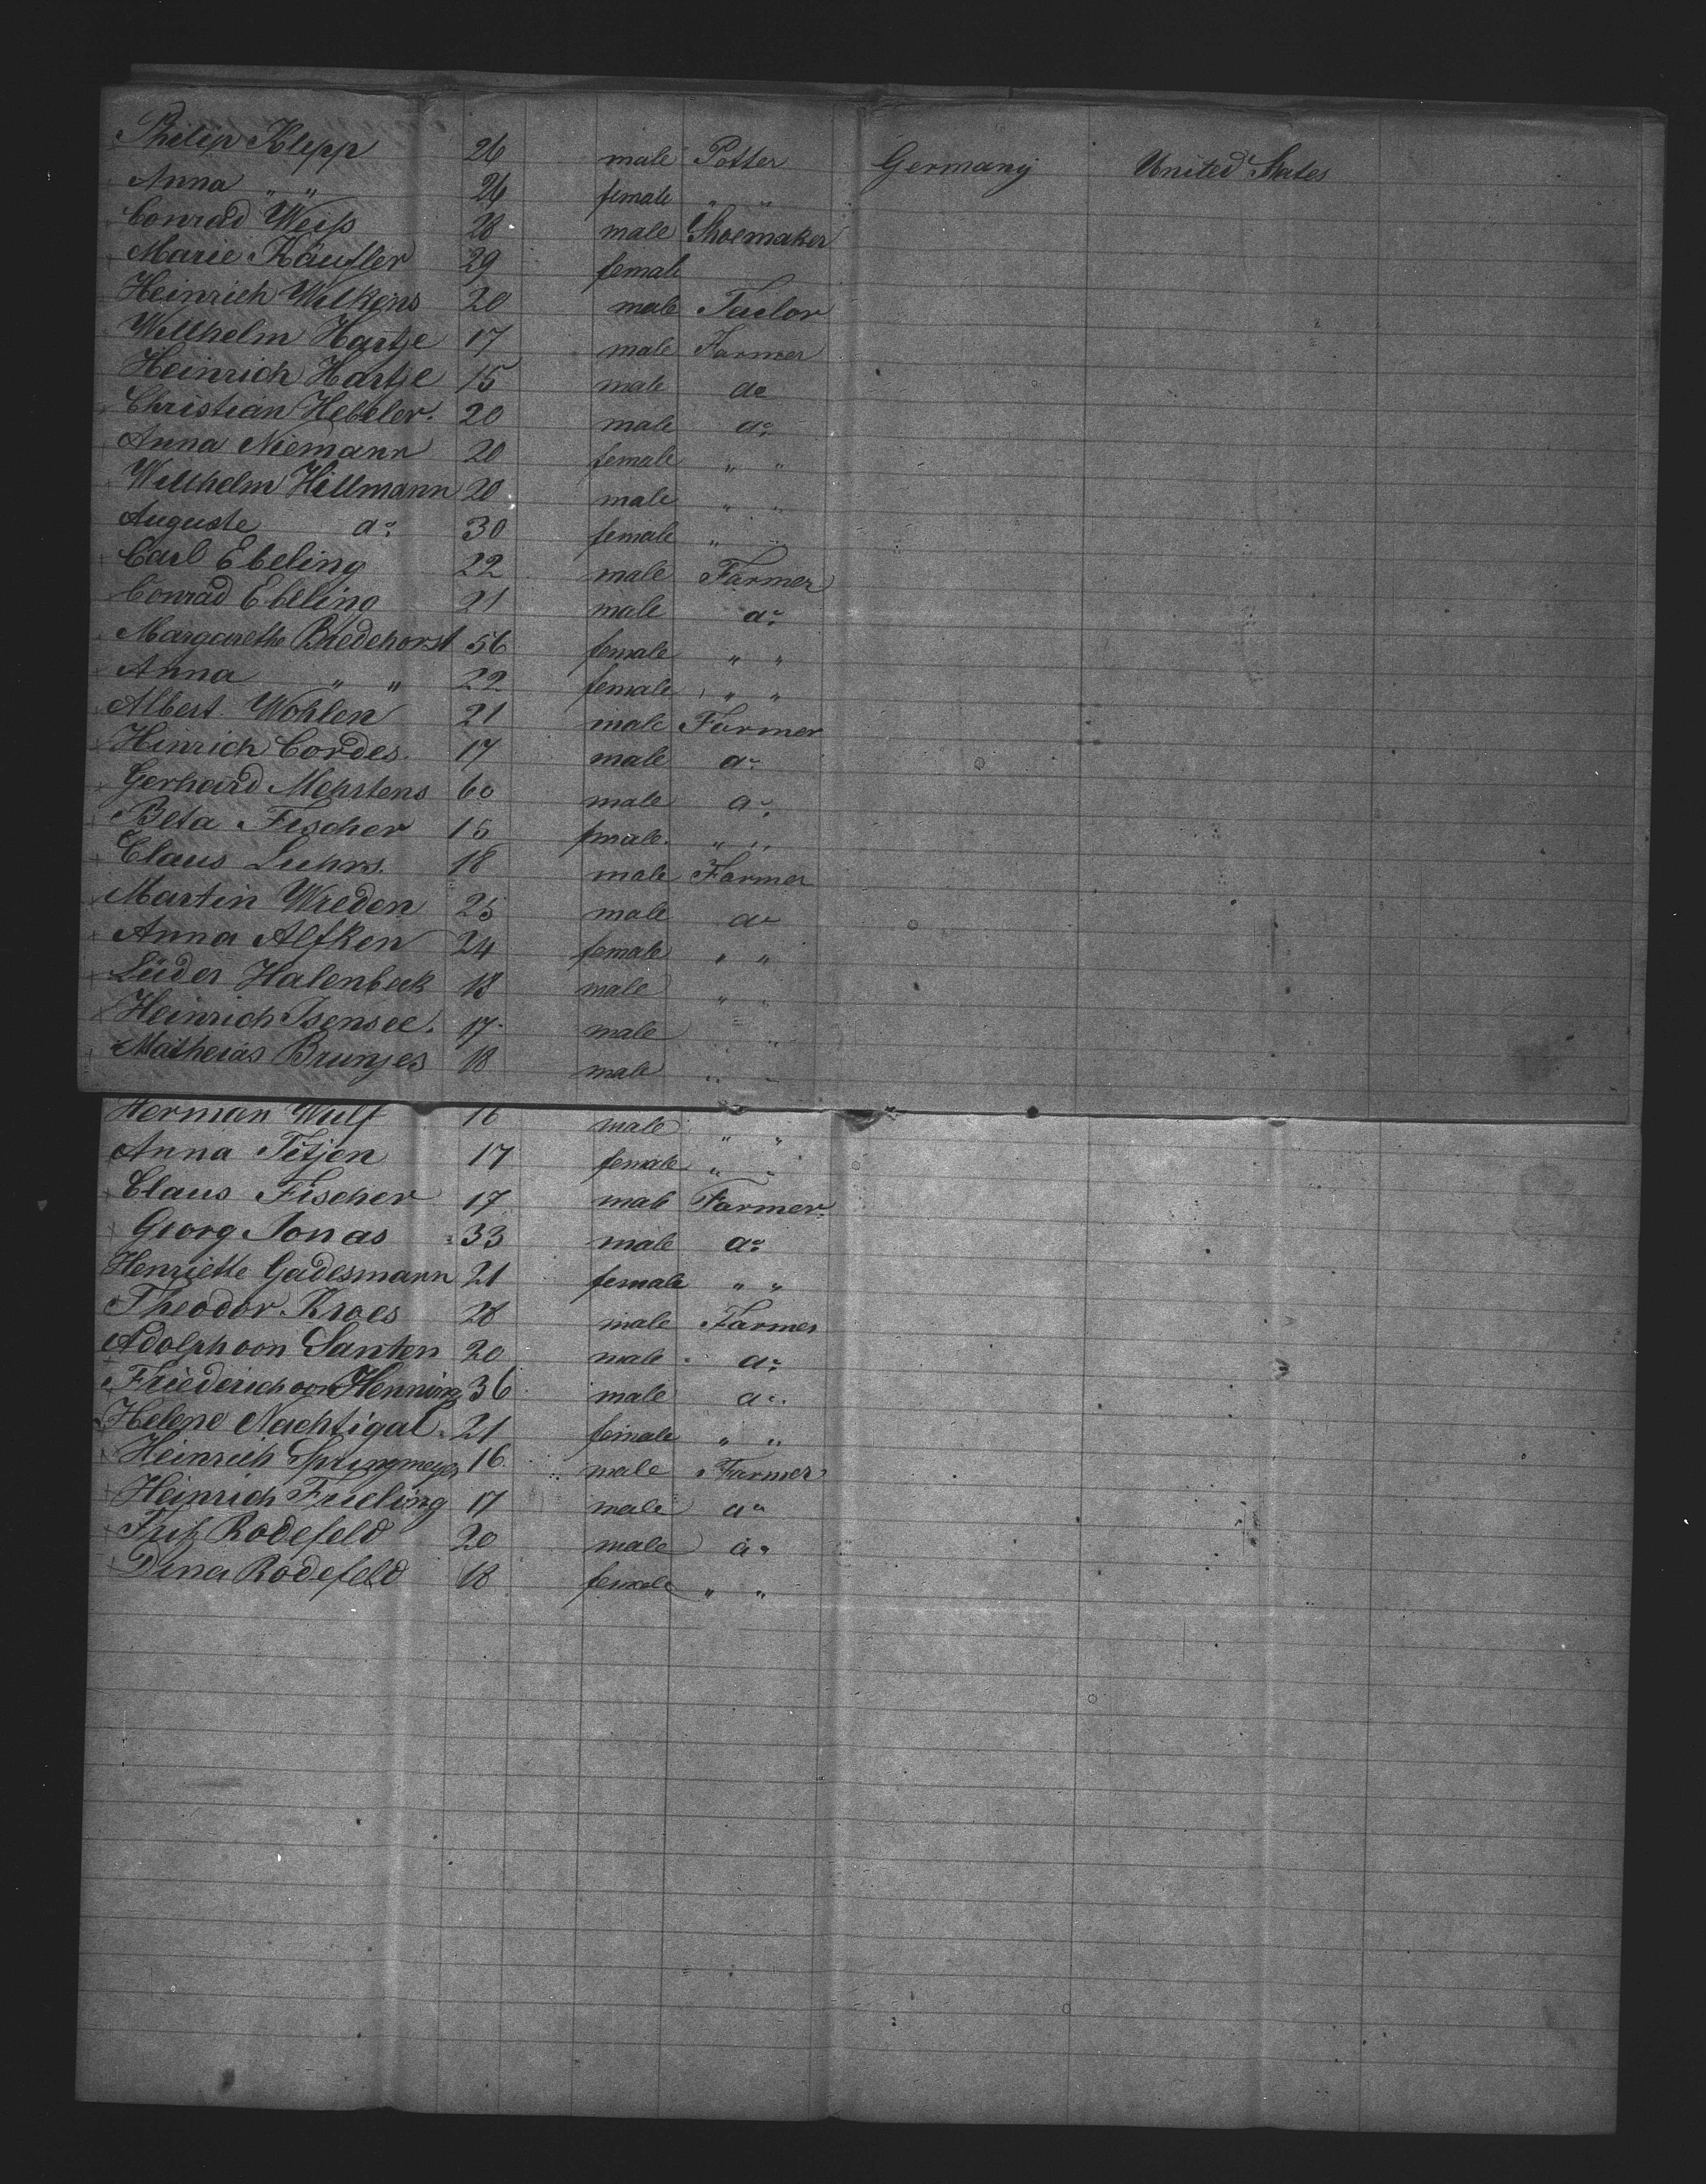 Philip Klepp 26 male Potter Germany United States
Anna " " 26 female " "
Conrad Weiß 28 male Shoemaker
Marie Käufler 29 female
Heinrich Wilkens 20 male Taelor
Willhelm Hartje 17 male Farmer
Heinrich Hartje 15 male do
Christian Hebeler. 20 male do
Anna Niemann 20 female " "
Willhelm Hillmann 20 male " "
Auguste do 30 female " "
Carl Ebeling 22 male Farmer
Conrad Ebeling 21 male do
Margarethe Bredehorst 56 female " "
Anna " " 22 female " "
Albert Wohlen 21 male Farmer
Hinrich Cordes. 17 male do
Gerhard Mehrtens 60 male do
Beta Fischer 15 female. " "
Claus Luhrs. 18 male Farmer
Martin Wreden 25 male do
Anna Alfken 24 female " "
Lüder Halenbeck 18 male " "
Heinrich Isensee. 17 male " "
Matheias Brunjes 18 male " "
Herman Wulf 16 male " "
Anna Titjen 17 female " "
Claus Fischer 17 male Farmer
Georg Jonas 33 male do
Henriette Gadesmann 21 female " "
Theodor Kroes 28 male Farmer
Adolph von Santen 20 male do
Friederich von Henning 36 male do
Helene Nachtigal 21 female " "
Heinrich Springmeyer 16 male Farmer
Heinrich Frieling 17 male do
Fritz Rodefeld 20 male do
Dina Rodefeld 18 female " "